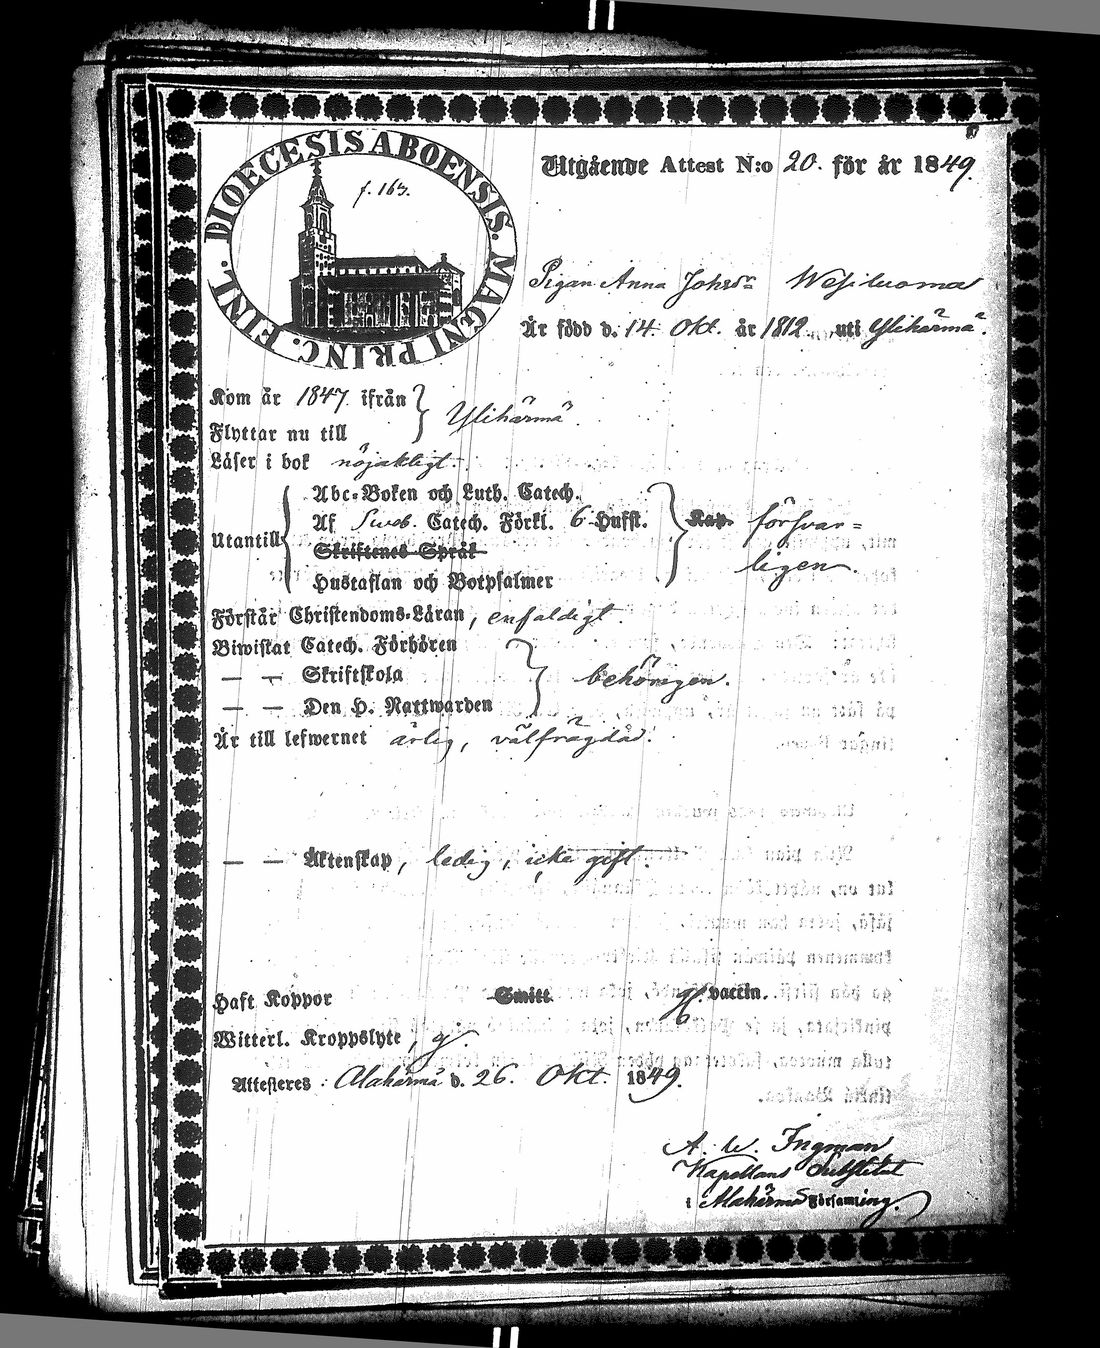 DIOECESIS ABOENSIS. MAGNI PRINC. FINL.
f. 163.
Utgående Attest N:o 20. för år 1849.
Pigan Anna Johsdr Wesiluoma
Är född d. 14. Okt. år 1812. uti Ylihärmä.
Kom år 1847. ifrån
Flyttar nu till
Ylihärmä.
Läser i bok nöjaktligt.
Utantill
Abc-Boken och Luth. Catech.
Af Sveb. Catech. Förkl. 6 Hufst.
Skriftenes Språk
Hustaflan och Botpsalmer
Kap. försvar=
ligen.
Förstår Christendoms-Läran, enfaldigt.
Biwistat Catech. Förhören
— — Skriftskola
— — Den H. Nattwarden
behörigen.
Är till lefwernet ärlig, välfrägdad.
— — Äktenskap, ledig, icke gift.
Haft Koppor Smitt vaccin.
Witterl. Kroppslyte, ej.
Attesteras: Alahärmä d. 26. Okt. 1849.
A. W. Ingman
Kapellans Substitut
i Alahärmä Församling.